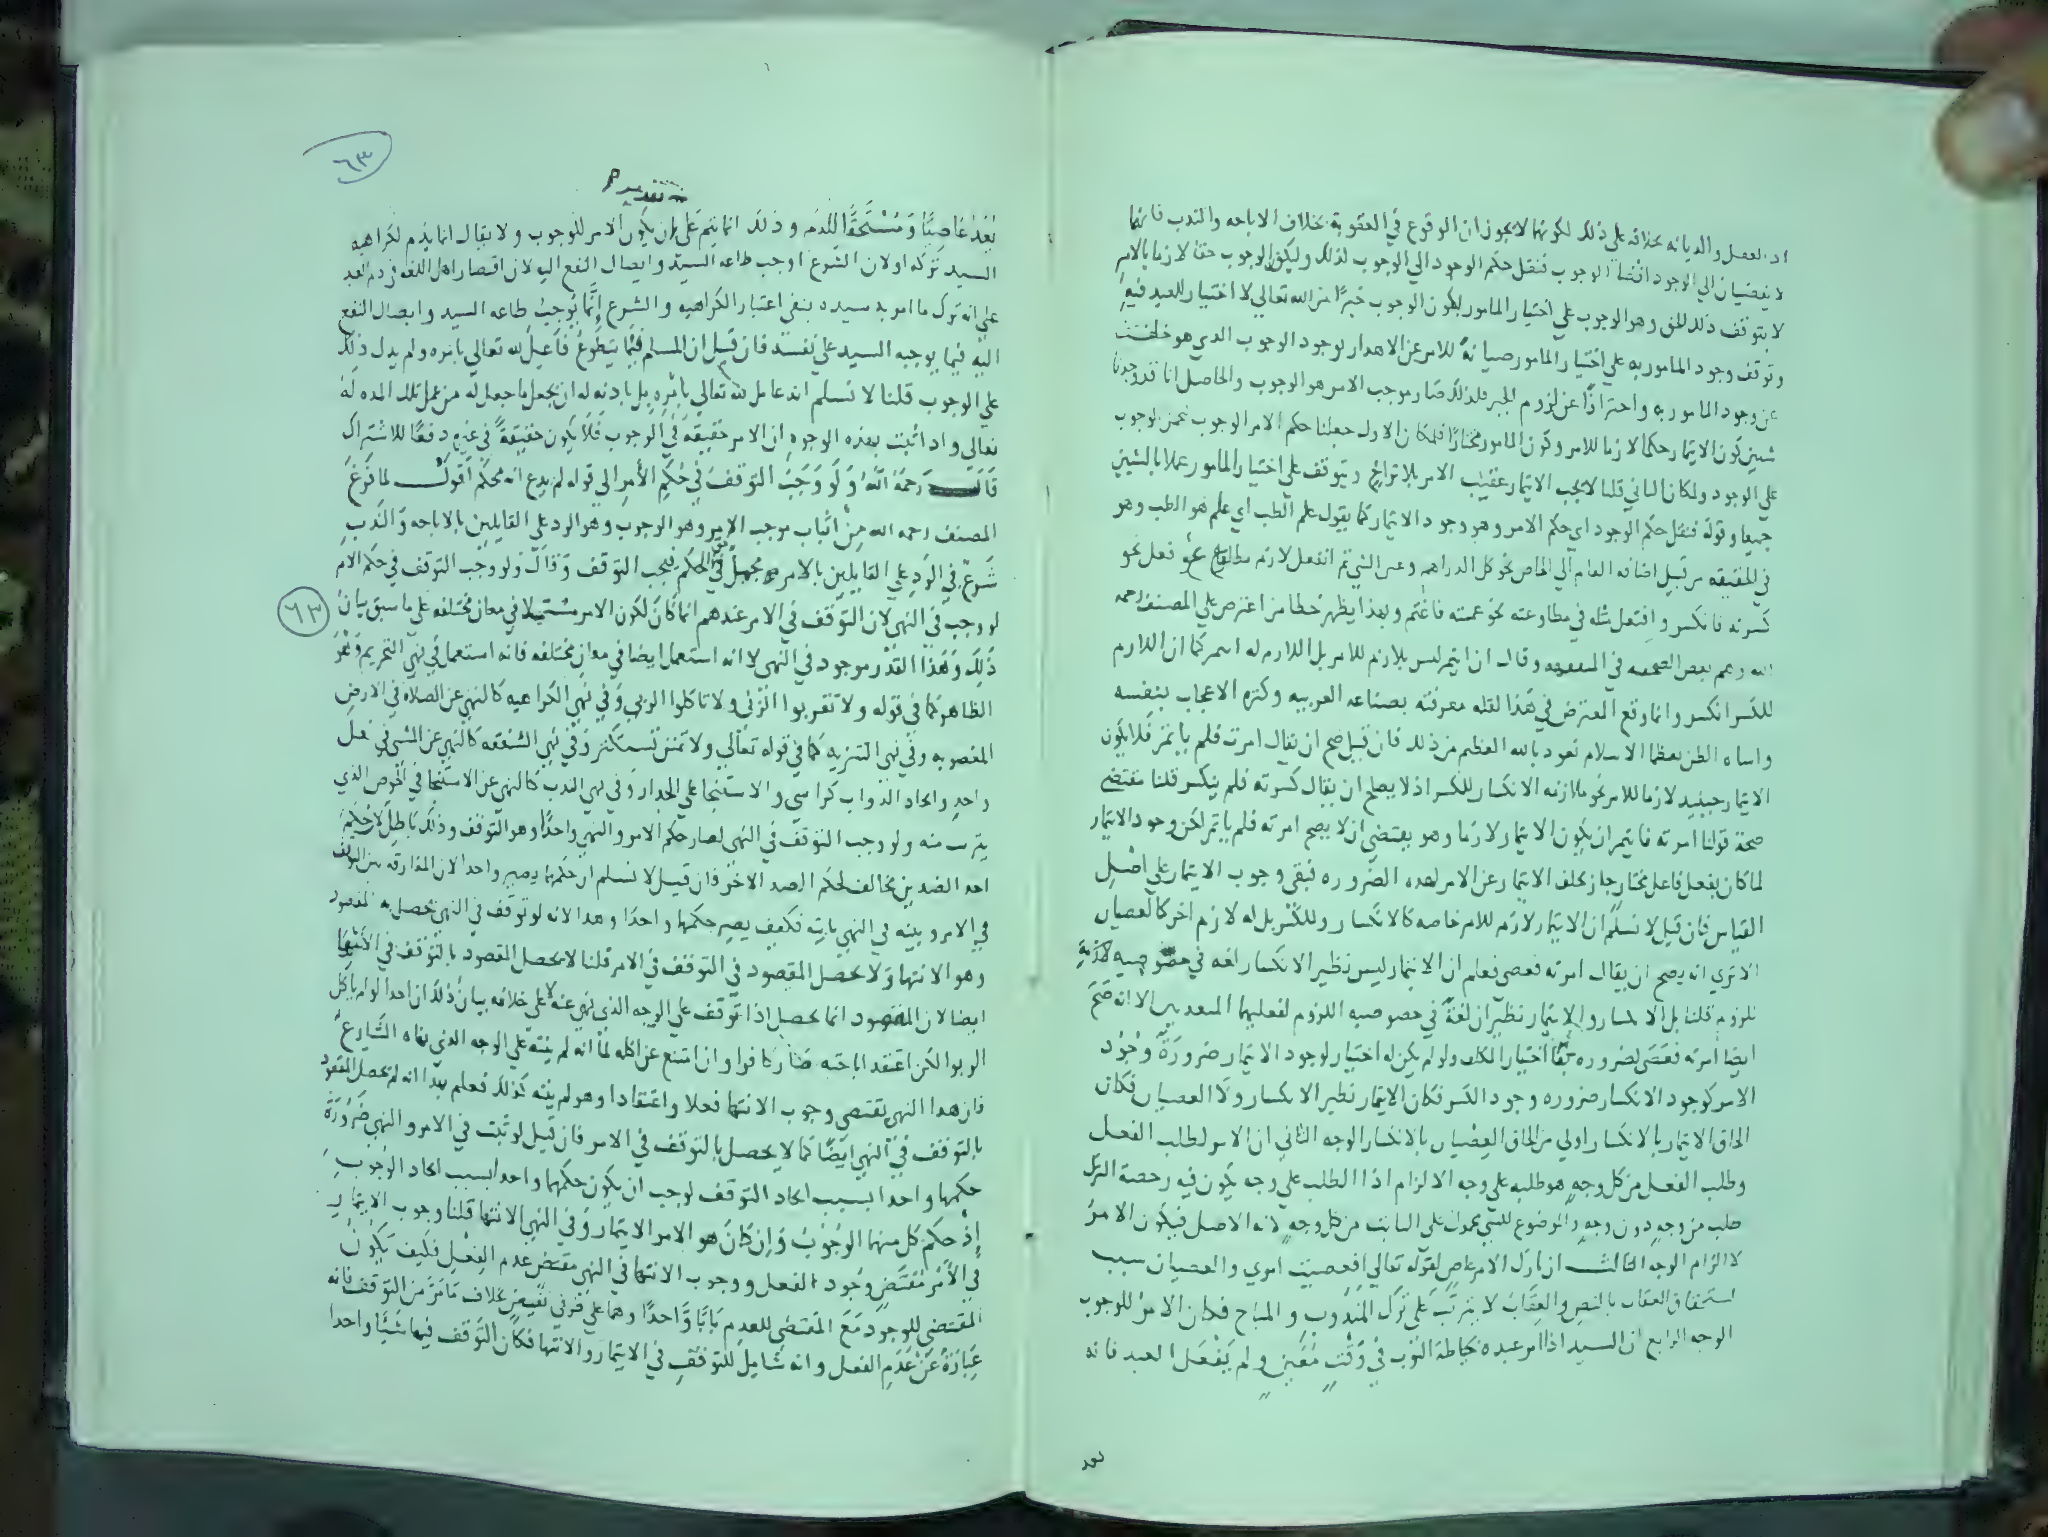 اد العقل والديانه بخلافه علي ذلك لكونها لا يجوز ان الوقوع في العقوبة بخلاف الاباحه والندب فانهما
لا يفضيان الي الوجود اقتضا الوجوب فنقل حكم الوجود الي الوجوب لذلك وليكن الوجوب حقا لازما بالامر
لا يتوقف ذلك الحق وهو الوجوب علي اختيار المامور لكون الوجوب جبرا من الله تعالي لا اختيار للعبد فيه
وتوقف وجود المامور به علي اختيار المامور صيانة للامر عن الاهدار لوجود الوجوب الذي هو خلف
عن وجود المامور به واحترازا عن لزوم الجبر فلذلك صار موجب الامر هو الوجوب والحاصل انا قد وجدنا
شيين كون الايتمار حكما لازما للامر وكون المامور مختارا فلمكان الاول جعلنا حكم الامر الوجوب
علي الوجود ولمكان الثاني قلنا لا يجب الايتمار عقيب الامر بلا تراخ ويتوقف علي اختيار المامور عملا بالشيين
جميعا وقوله فنقل حكم الوجود اي حكم الامر وهو وجود الايتمار كما يقول علم الطب اي علم هو الطب وهو
في الحقيقه من قبيل اضافه العام الي الخاص نحو كل الدراهم وعين الشي ثم انفعل لازم مطاوع فعل نحو
كسرته فانكسر وافتعل مثله في مطاوعته نحو غممته فاغتم وبهذا يظهر خطا من اعترض علي المصنف رحمه
الله وقال ان ايتمر ليس بلازم للامر بل اللازم له كما ان اللازم
للكسر انكسر وانما وقع المعترض في هذا لقله معرفته بصناعه العربيه وكثره الاعجاب بنفسه
واساه الظن بعظما الاسلام نعوذ بالله العظيم من ذلك فان قيل صح ان يقال امرت فلم ياتمر فلا يكون
الايتمار حينيذ لازما للامر نحو ملازمه الانكسار للكسر اذ لا يصلح ان يقال كسرته فلم ينكسر قلنا مقتضي
صحة قولنا امرته فايتمر ان يكون الايتمار لازما وهو يقتضي ان لا يصح امرته فلم ياتمر لكن وجود الايتمار
لما كان بفعل فاعل مختار جاز تخلف الايتمار عن الامر لهذه الضروره فبقي وجوب الايتمار علي اصل
القياس فان قيل لا نسلم ان الايتمار لازم للامر خاصه كالانكسار للكسر بل له لازم اخر كالعصيان
الا تري انه يصح ان يقال امرته فعصي فعلم ان الايتمار ليس نظير الانكسار لغه في خصوصيه
اللزوم قلنا بل الانكسار والايتمار نظيران لغة في خصوصيه اللزوم لفعليهما المتعديين الا انه صح
ايضا امرته فعصي لضروره بقا اختيار المكلف ولو لم يكن له اختيار لوجد الايتمار ضرورة وجود
الامر كوجود الانكسار ضروره وجود الكسر فكان الايتمار نظير الانكسار ولا العصيان فكان
الحاق الايتمار بالانكسار اولي من الحاق العصيان بالانكسار الوجه الثاني ان الامر لطلب الفعل
وطلب الفعل من كل وجه هو طلبه علي وجه الالزام اذ الطلب علي وجه يكون فيه رخصة الترك
طلب من وجه دون وجه والموضوع للشي محمول علي الثابت من كل وجه لانه الاصل فيكون الامر
للالزام الوجه الثالث ان تارك الامر عاص لقوله تعالي افعصيت امري والعصيان سبب
استحقاق العقاب بالنص والعقاب لا يترتب علي ترك المندوب والمباح فكان الامر للوجوب
الوجه الرابع ان السيد اذا امر عبده بخياطة الثوب في وقت معين ولم يفعل العبد فانه
يعد
٦٣
تقدير
يعد عاصيا ومستحقا للذم وذلك انما يتم علي ان يكون الامر للوجوب ولا يقال انما يذم لكراهيه
السيد تركه او لان الشرع اوجب طاعه السيد وايصال النفع اليه لان اقتصار اهل اللغه في ذم العبد
علي انه ترك ما امر به سيده ينفي اعتبار الكراهيه والشرع انما يوجب طاعه السيد وايصال النفع
اليه فيما يوجبه السيد علي نفسه فان قيل ان المسلم فيما يتطوع فاعل لله تعالي بامره ولم يدل ذلك
علي الوجوب قلنا لا نسلم انه عامل لله تعالي بامره بل باذنه له ان يجعل ما جعل له من عمل تلك المده له
تعالي واذا ثبت بهذه الوجوه ان الامر حقيقه في الوجوب فلا يكون حقيقة في غيره دفعا للاشتراك
قال رحمه الله ولو وجب التوقف في حكم الامر الي قوله لم يدع انه محكم اقول لما فرغ
المصنف رحمه الله من اثبات موجب الامر وهو الوجوب وهو الرد علي القايلين بالاباحه والندب
شرع في الرد علي القايلين بالامر مجمل في الحكم فيجب التوقف وقال ولو وجب التوقف في حكم الامر
لوجب في النهي لان التوقف في الامر عندهم انما كان لكون الامر مستعملا في معان مختلفه علي ما سبق بيان
٦٣
ذلك وهذا القدر موجود في النهي لانه استعمل ايضا في معان مختلفه فانه استعمل في نهي التحريم وهو
الظاهر كما في قوله ولا تقربوا الزني ولا تاكلوا الربي وفي نهي الكراهيه كالنهي عن الصلاه في الارض
المغصوبه وفي نهي التنزيه كما في قوله تعالي ولا تمنن تستكثر وفي نهي الشفقه كالنهي عن المشي في نعل
واحد واتخاذ الدواب كراسي والاستنجا علي الجدار وفي نهي الندب كالنهي عن الاستنجا في الحوض الذي
يشرب منه ولو وجب التوقف في النهي لصار حكم الامر والنهي واحدا وهو التوقف وذلك باطل لان حكم
احد الضدين مخالف لحكم الضد الاخر فان قيل لا نسلم ان حكمهما يصير واحدا لان المفارقه بين التوقف
في الامر وبينه في النهي ثابته فكيف يصير حكمهما واحدا وهذا لانه لو توقف في النهي يحصل به المقصود
وهو الانتها ولا يحصل المقصود في التوقف في الامر قلنا لا يحصل المقصود بالتوقف في الانتها
ايضا لان المقصود انما يحصل اذا توقف علي الوجه الذي نهي عنه لا علي خلافه بيان ذلك ان احدا لو لم ياكل
الربوا لكن اعتقد اباحته صار كافرا وان امتنع عن اكله لما انه لم ينته علي الوجه الذي نهاه الشارع
فان هذا النهي يقتضي وجوب الانتها فعلا واعتقادا وهو لم ينته كذلك فعلم بهذا انه لم يحصل المقصود
بالتوقف في النهي ايضا كما لا يحصل بالتوقف في الامر فان قيل لو ثبت في الامر والنهي ضرورة
حكمهما واحدا بسبب اتحاد التوقف لوجب ان يكون حكمهما واحدا بسبب اتحاد الوجوب
اذ حكم كل منهما الوجوب وان كان هو الامر الايتمار وفي النهي الانتها قلنا وجوب الايتمار
في الامر مقتض وجود الفعل ووجوب الانتها في النهي مقتض عدم الفعل فكيف يكون
المقتضي للوجود مع المقتضي للعدم بابا واحدا وهما علي طرفي نقيض بخلاف ما مر من التوقف فانه
عبارة عن عدم الفعل وانه شامل للتوقف في الايتمار والانتها فكان التوقف فيهما شيا واحدا